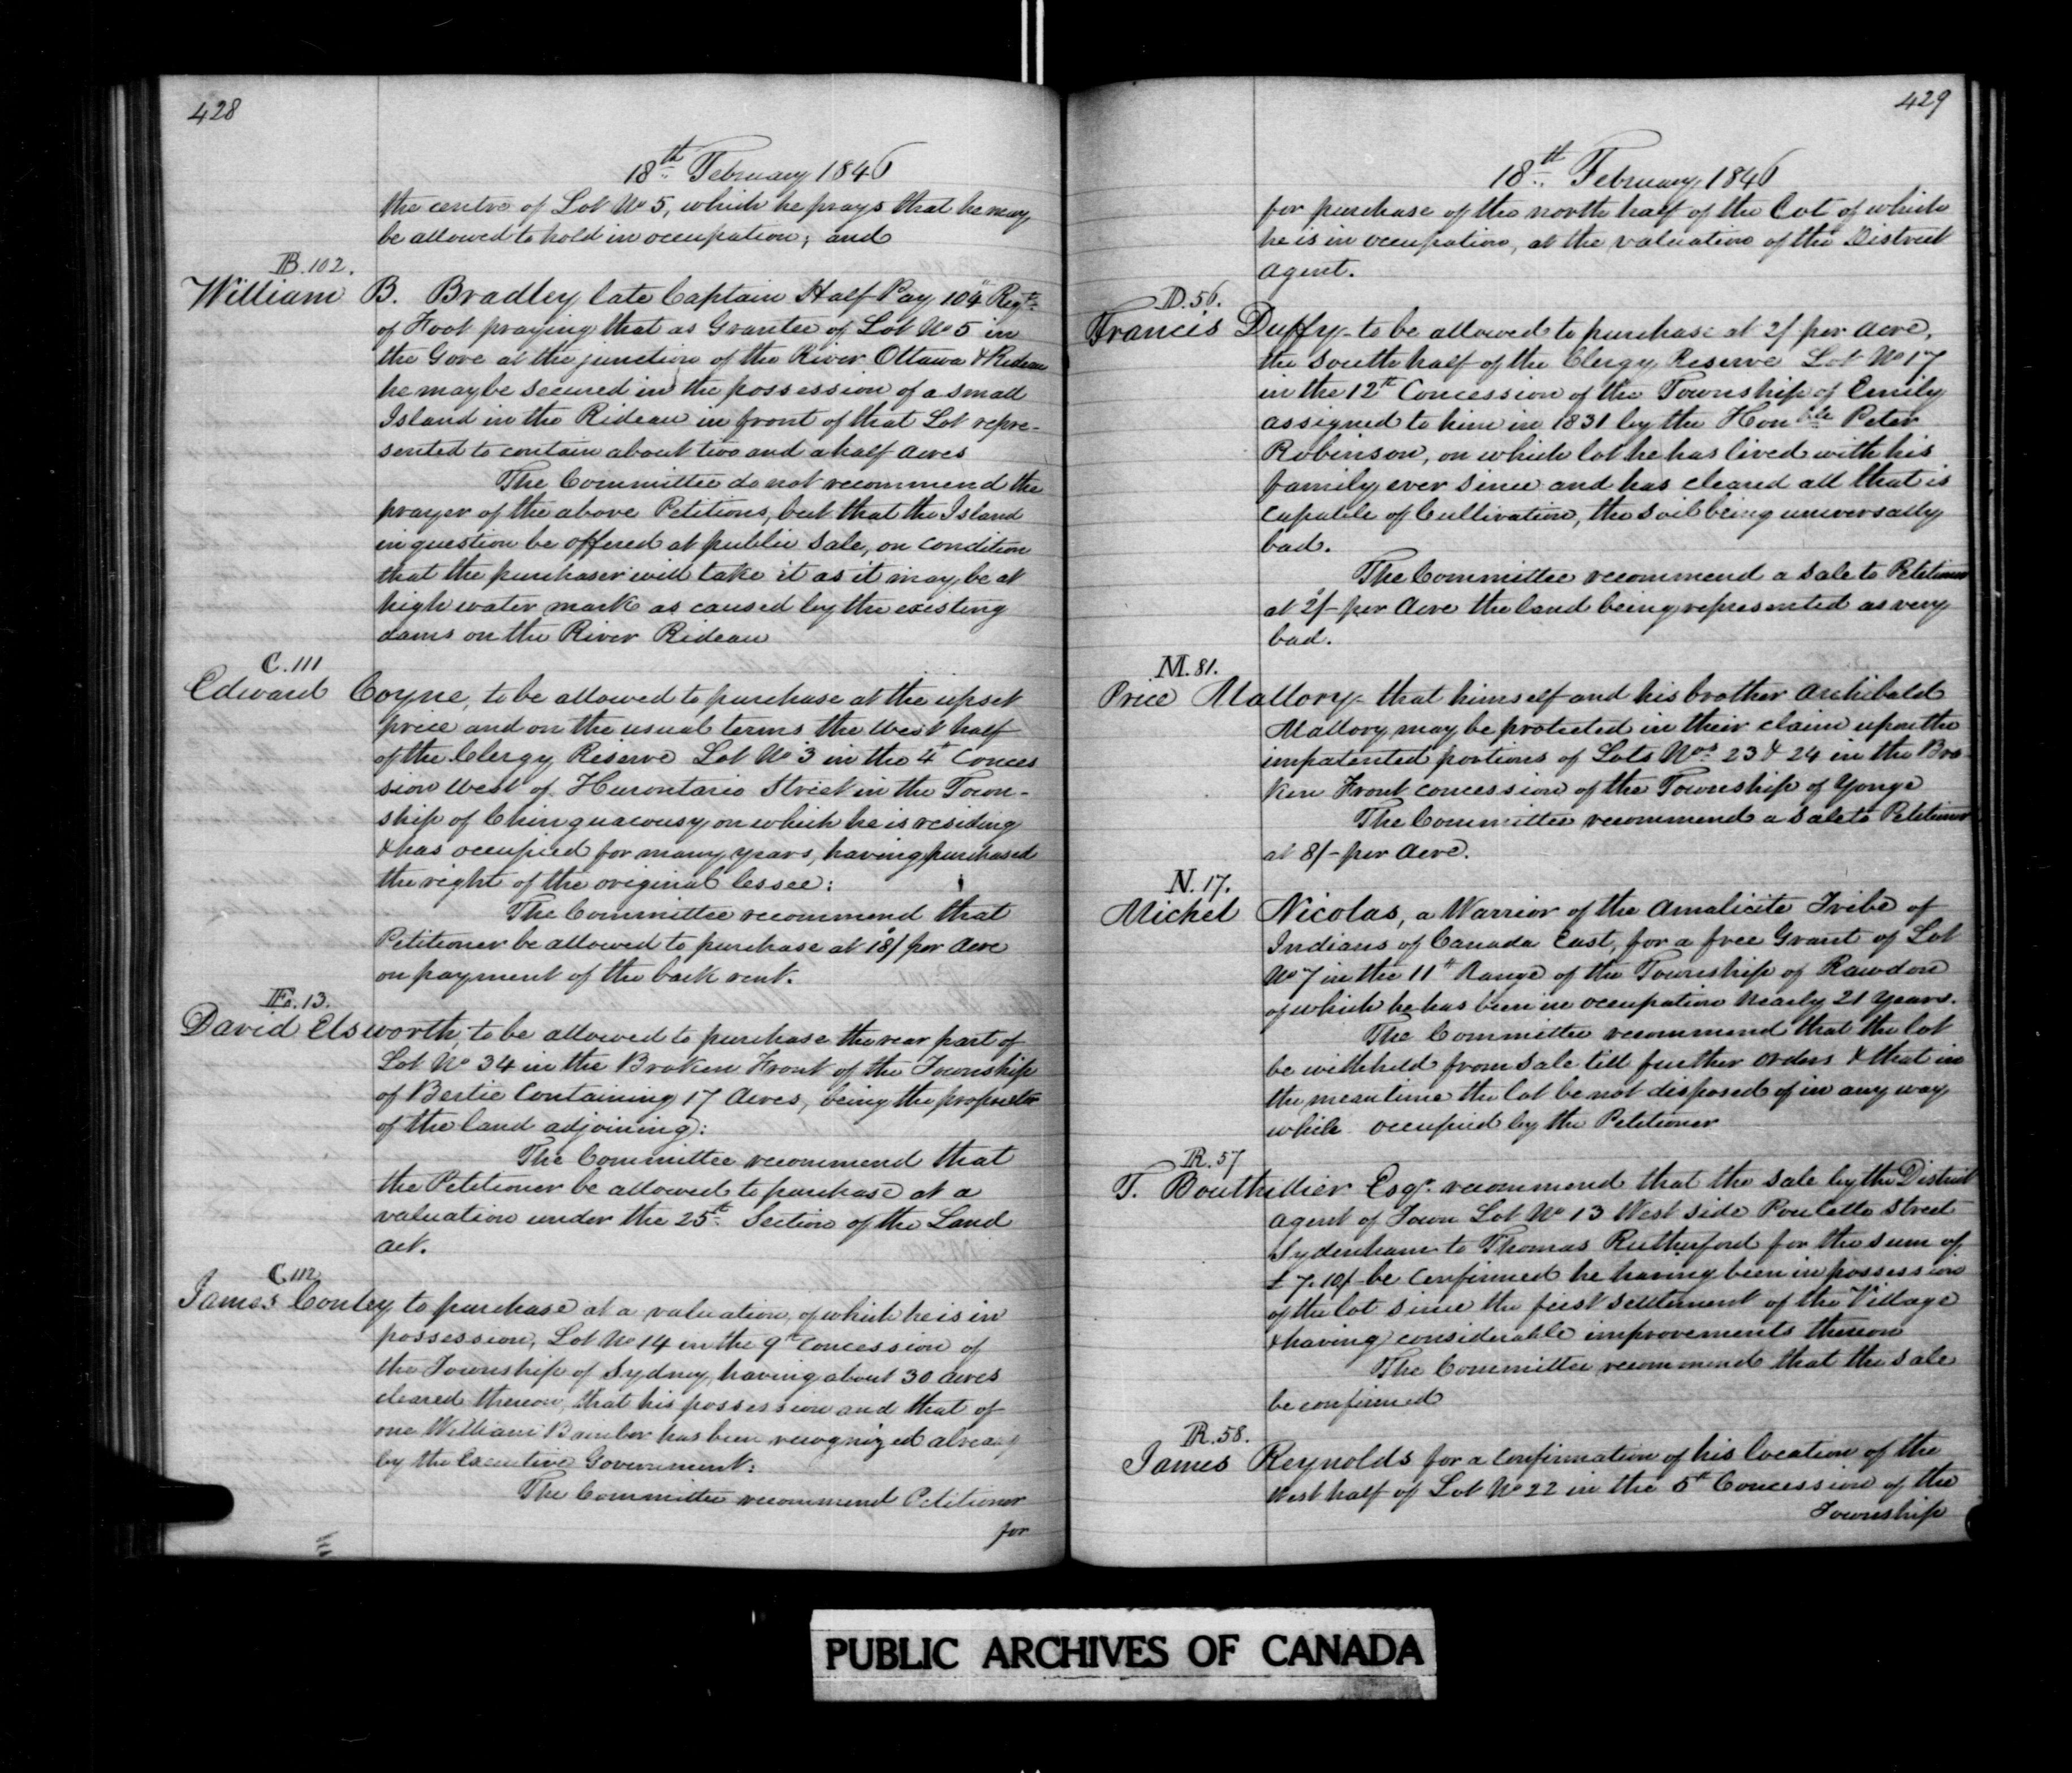 428
18th February 1846
the centre of Lot No 5, which he prays that he may
be allowed to hold in occupation; and
B. 102.
William B. Bradley late Captain Half Pay 104 Regt
of Foot praying that as Grantee of Lot No 5 in
the Gore at the junction of the River Ottawa & Rideau
he may be secured in the possession of a small
Island in the Rideau in front of that Lot repre-
sented to contain about two and a half acres
The Committee do not recommend the
prayer of the above Petitions, but that the Island
in question be offered at public sale, on condition
that the purchaser will take it as it may be at
high water mark as caused by the existing
dams on the River Rideau
C. 111
Edward Coyne, to be allowed to purchase at the upset
price and on the usual terms the West half
of the Clergy Reserve Lot No 3 in the 4th Conces
sion West of Hurontario Street in the Town-
ship of Chinguacousy on which he is residing
& has occupied for many years, having purchased
the right of the original lessee:
The Committee recommend that
Petitioner be allowed to purchase at 18/ per Acre
on payment of the back rent.
E. 13.
David Elsworth, to be allowed to purchase the rear part of
Lot No 34 in the Broken Front of the Township
of Bertie containing 17 Acres, being the proprietor
of the land adjoining:
The Committee recommend that
the Petitioner be allowed to purchase at a
valuation under the 25th Section of the Land
Act.
C. 112
James Conley to purchase at a valuation, of which he is in
possession, Lot No 14 in the 9th Concession of
the Township of Sydney, having about 30 acres
cleared thereon, that his possession and that of
one William Bamber has been recognized already
by the Executive Government:
The Committee recommend Petitioner
for
429
18th February 1846
for purchase of the north half of the Lot of which
he is in occupation, at the valuation of the District
Agent.
D. 56.
Francis Duffy - to be allowed to purchase at 2/ per Acre,
the South half of the Clergy Reserve Lot No 17
in the 12th Concession of the Township of Emily
assigned to him in 1831 by the Honble Peter
Robinson, on which lot he has lived with his
family ever since and has cleared all that is
capable of Cultivation, the soil being universally
bad.
The Committee recommend a sale to Petitioner
at 2/- per Acre the land being represented as very
bad.
M. 81.
Price Mallory - that himself and his brother Archibald
Mallory may be protected in their claim upon the
unpatented portions of Lots Nos 23 & 24 in the Bro
ken Front concession of the Township of Yonge
The Committee recommend a sale to Petitioner
at 8/- per Acre.
N. 17.
Michel Nicolas, a Warrior of the Amalicite Tribe of
Indians of Canada East, for a free Grant of Lot
No 7 in the 11th Range of the Township of Rawdon
of which he has been in occupation nearly 21 years.
The Committee recommend that the lot
be withheld from sale till further orders & that in
the meantime the lot be not disposed of in any way
while occupied by the Petitioner
R. 57
T. Bouthillier Esqr. recommend that the sale by the District
Agent of Town Lot No 13 West side Poulette Street
Sydenham to Thomas Rutherford for the sum of
£7.10/- be confirmed he having been in possession
of the lot since the first settlement of the Village
& having considerable improvements thereon
The Committee recommend that the sale
be confirmed
R. 58.
James Reynolds for a confirmation of his location of the
West half of Lot No 22 in the 5th Concession of the
Township
PUBLIC ARCHIVES OF CANADA